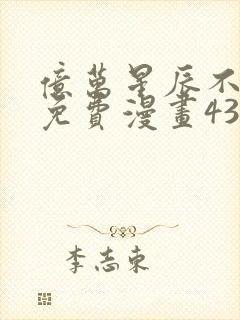 億萬星辰不
免費漫畫43
李志東